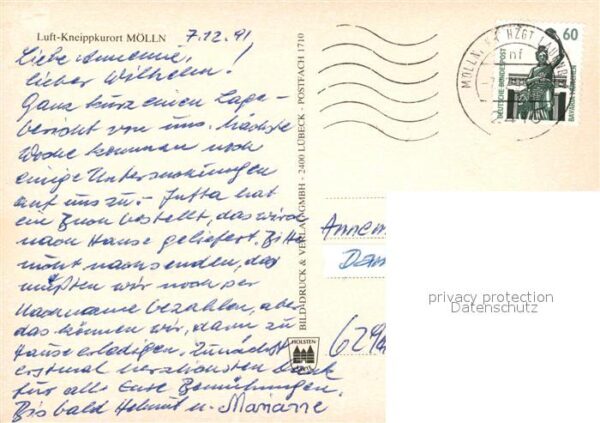 Luft-Kneippkurort MÖLLN
7.12.91
Liebe Annemie,
lieber Wilhelm!
Ganz kurz einen Lage-
bericht von uns. Nächste
Woche kommen noch
einige Untersuchungen
auf uns zu. Jutta hat
ein Buch bestellt, das wird
nach Hause geliefert. Bitte
nicht nachsenden, das
müßten wir noch per
Nachname bezahlen, aber
das können wir, dann zu
Hause erledigen. Zunächst
erstmal herzlichsten Dank
für alle Eure Bemühungen.
Bis bald Helmut u. Marianne
BILD-DRUCK & VERLAG GMBH - 2400 LÜBECK - POSTFACH 1710
HOLSTEN
MÖLLN
HZGT
60
DEUTSCHE BUNDESPOST
BAVARIA MÜNCHEN
Annem
629
privacy protection
Datenschutz